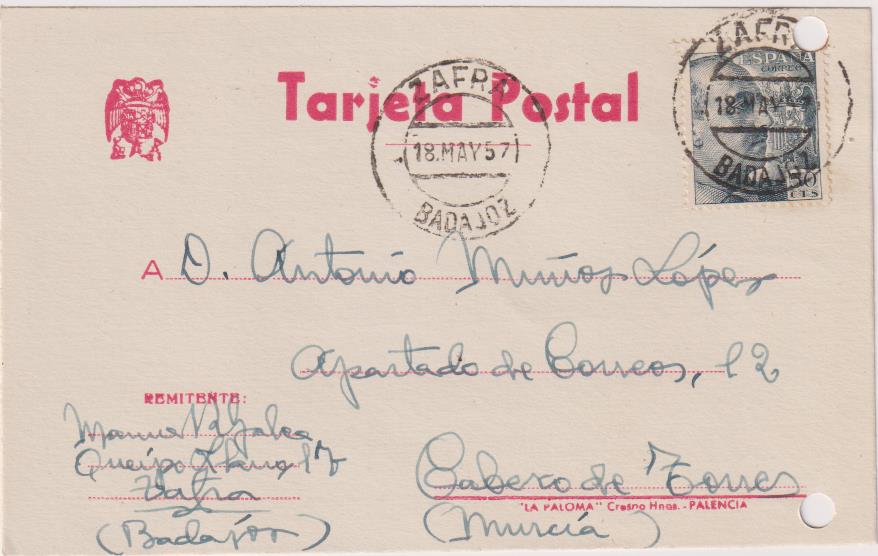 Tarjeta Postal
ZAFRA
18.MAY57
BADAJOZ
ZAFRA
18.MAY
BADAJOZ
ESPAÑA
CORREOS
50
CTS
A D. Antonio Muñoz López
Apartado de Correos, 12
Cabezo de Torres
(Murcia)
REMITENTE:
Queipo Llano, 17
Zafra
(Badajoz)
"LA PALOMA" Crespo Hnos.-PALENCIA